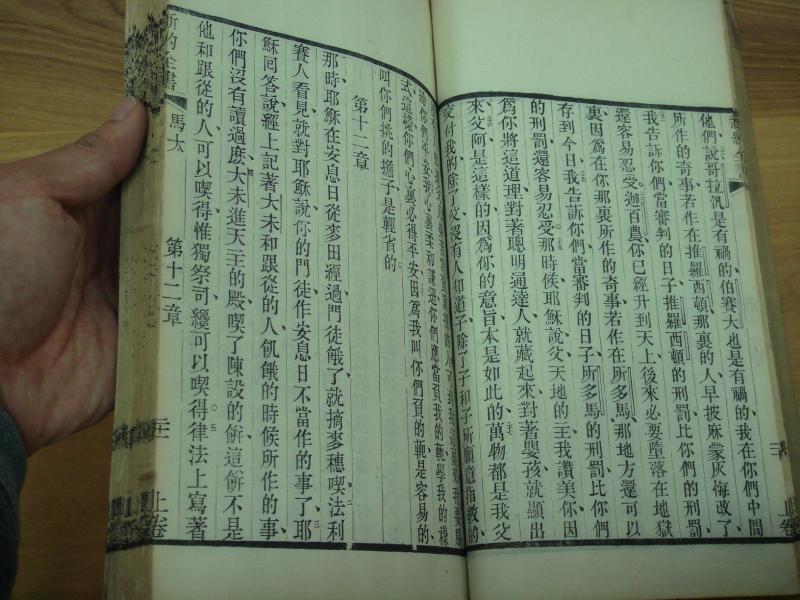 他們說哥拉汎是有禍的伯賽大也是有禍的我在你們中間
所作的奇事若作在推羅西頓那裏的人早披麻蒙灰悔改了
我告訴你們當審判的日子推羅西頓的刑罰比你們的刑罰
還容易忍受迦百農你已經升到天上後來必要墮落在地獄
裏因爲在你那裏所作的奇事若作在所多馬那地方還可以
存到今日我告訴你們當審判的日子所多馬的刑罰比你們
的刑罰還容易忍受那時候耶穌說父天地的主我讚美你因
爲你將這道理對著聰明通達人就藏起來對著嬰孩就顯出
來父阿是這樣的因爲你的意旨本是如此的萬物都是我父
交付我的除了父沒有人知道子除了子和子所願意指教的
你們平安我心裏柔和謙遜你們應當負我的軛學我的樣
式這樣你們心裏必得平安因爲我叫你們負的軛是容易的
叫你們挑的擔子是輕省的
第十二章
那時耶穌在安息日從麥田經過門徒餓了就摘麥穗喫法利
賽人看見就對耶穌說你的門徒作安息日不當作的事了耶
穌回答說經上記著大未和跟從的人飢餓的時候所作的事
你們沒有讀過麽大未進天主的殿喫了陳設的餅這餅不是
他和跟從的人可以喫得惟獨祭司纔可以喫得律法上寫著
新約全書 馬太 第十二章 二十 上卷